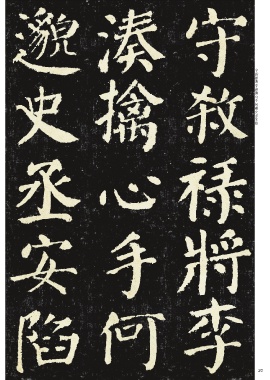 守殺禄將李
湊擒心手何
邈史丞安陷